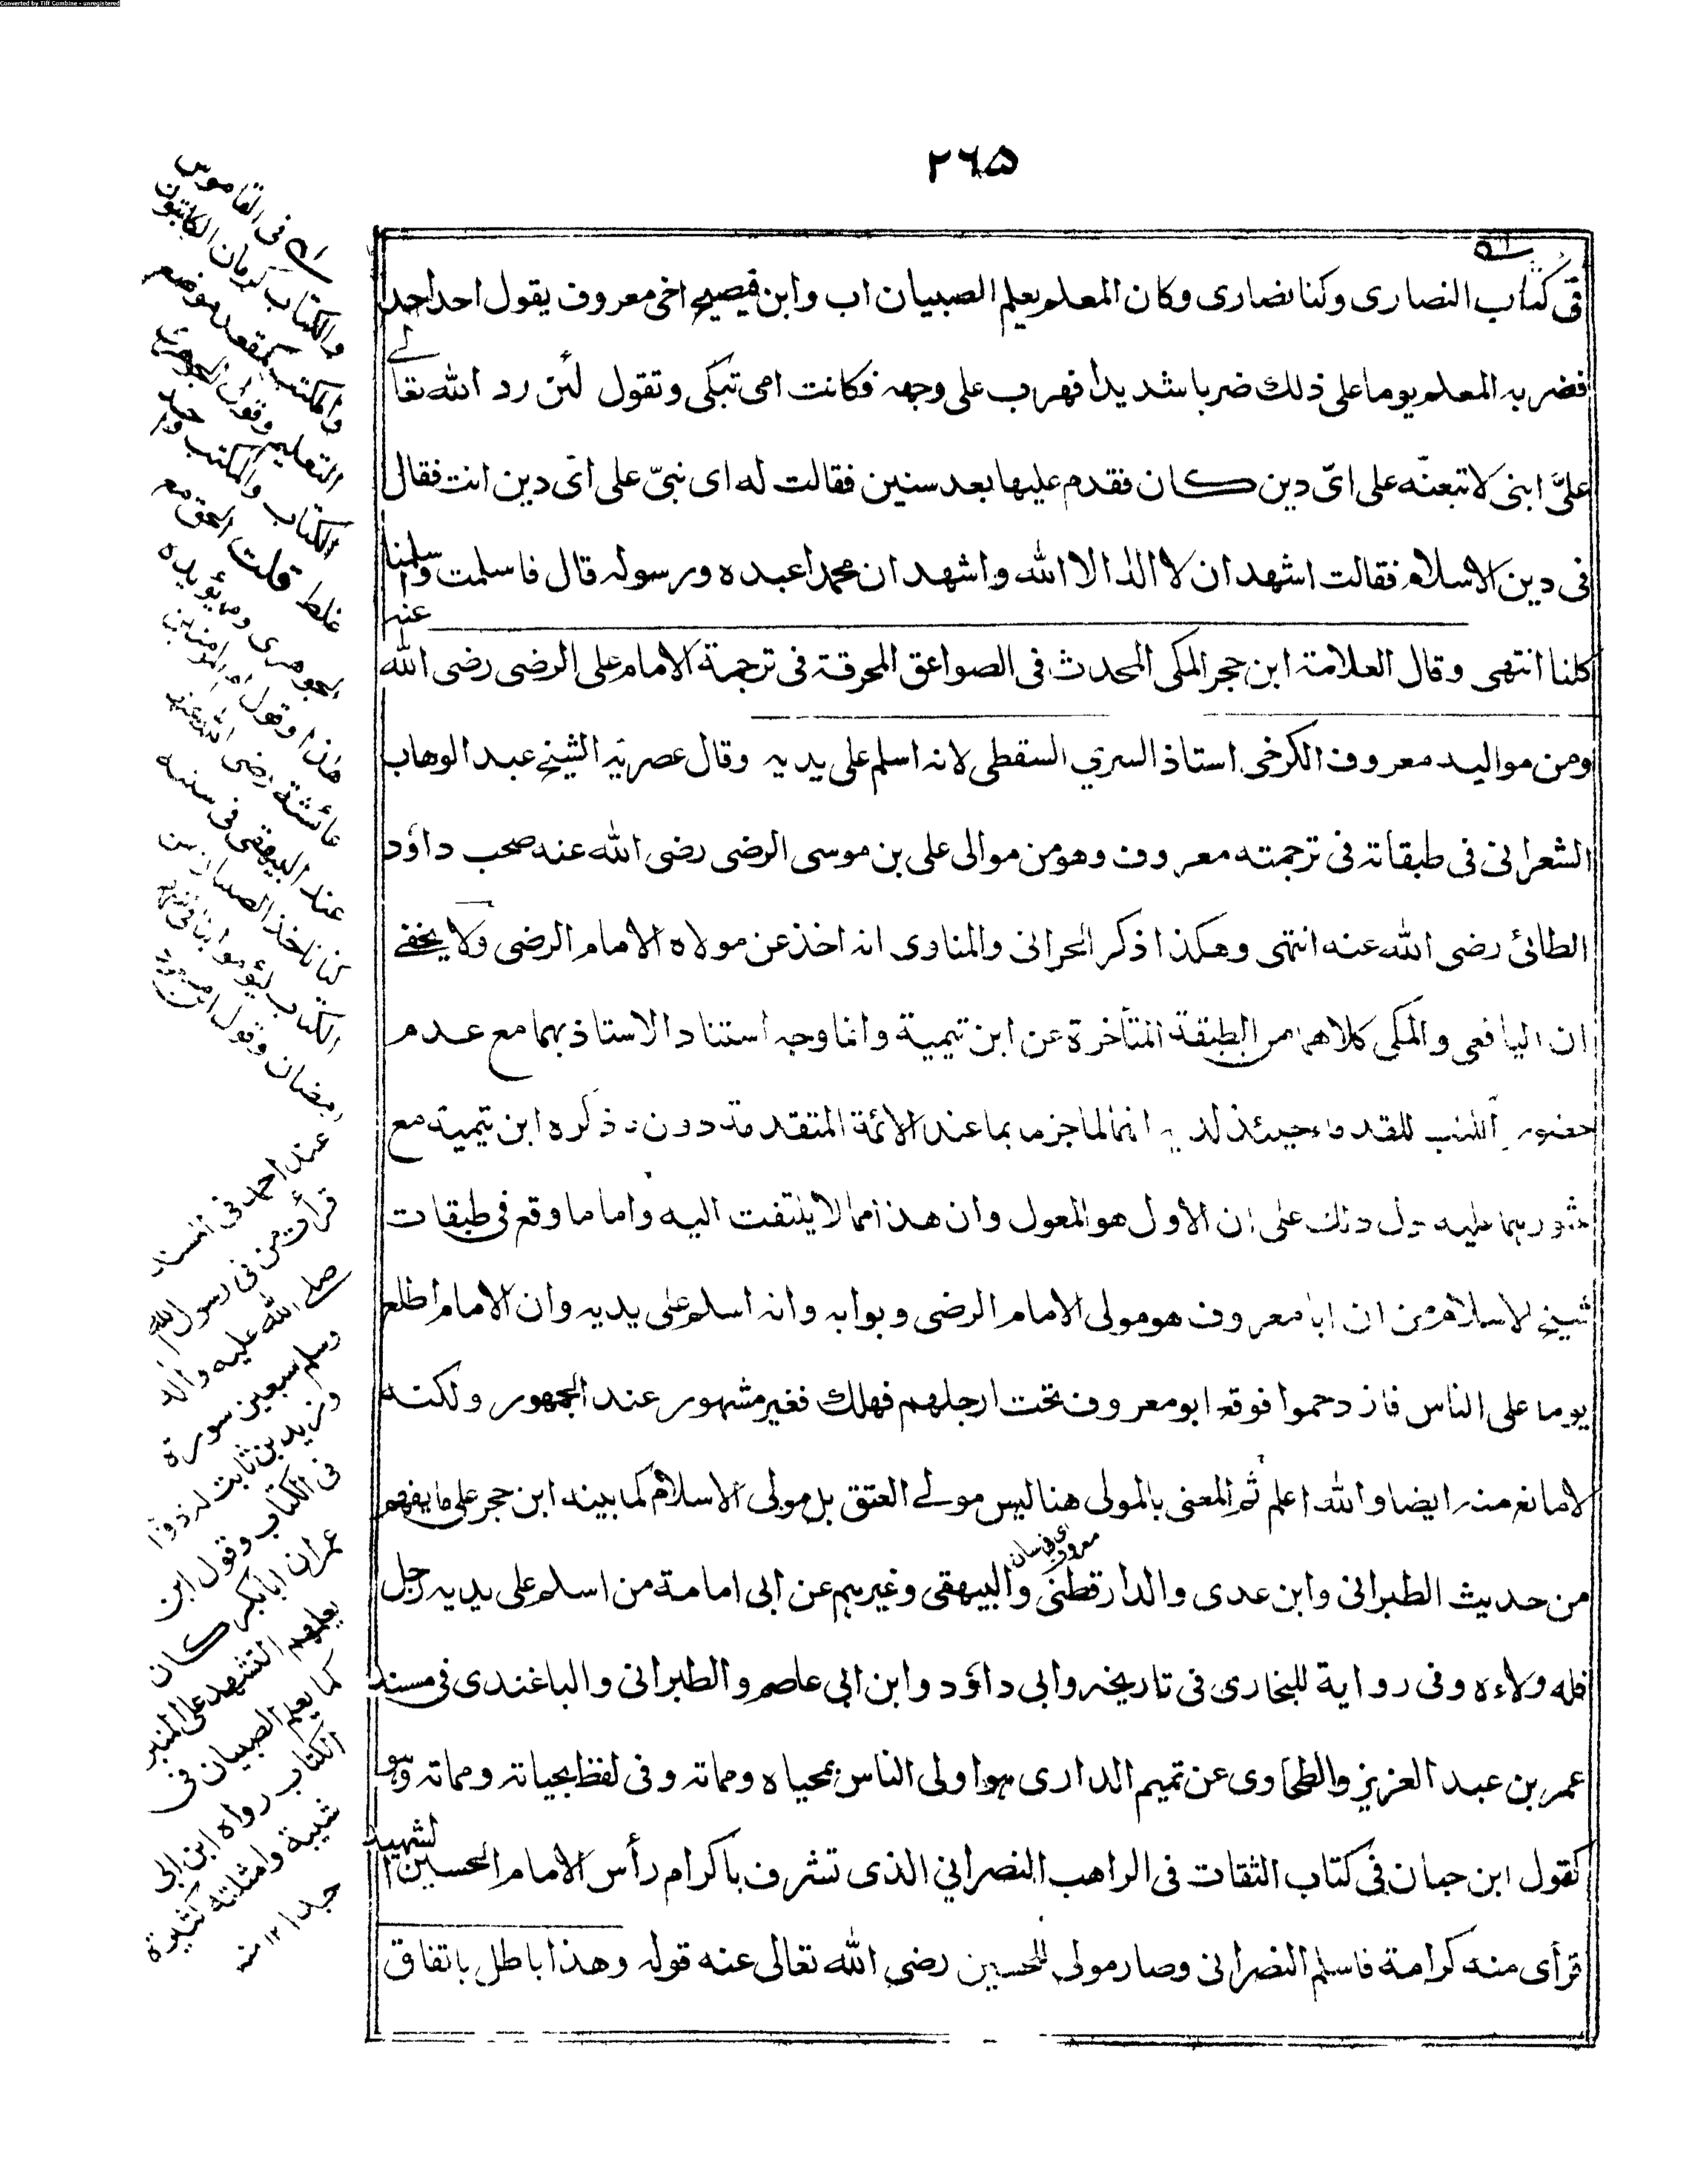 Converted by Tiff Combine - unregistered
۲۶۵
فی کتاب النصاری وکنا نصاری وکان المعلم یعلم الصبیان اب وابن فیصیح اخی معروف یقول احد احد
فضربه المعلم یوما علی ذلك ضربا شدیدا فهرب علی وجهه فکانت امی تبکی وتقول لئن رد الله تعالے
علیَّ ابنی لاتبعنّه علی ایّ دین کان فقدم علیها بعد سنین فقالت له ای نبیّ علی ایّ دین انت فقال
فی دین الاسلام فقالت اشهد ان لا اله الا الله واشهد ان محمدا عبده ورسوله قال فاسلمت واسلمنا
کلنا انتهی وقال العلامة ابن حجر المکی المحدث فی الصواعق المحرقة فی ترجمة الامام علی الرضی رضی الله عنه
ومن موالیه معروف الکرخی استاذ السري السقطی لانه اسلم علی یدیه وقال عصریّه الشیخ عبد الوهاب
الشعرانی فی طبقاته فی ترجمته معروف وهو من موالی علی بن موسی الرضی رضی الله عنه صحب داؤد
الطائی رضی الله عنه انتهی وهکذا ذکر الحرانی والمناوی انه اخذ عن مولاه الامام الرضی ولا یخفے
ان الیافعی والمکی کلاهما من الطبقة المتأخرة عن ابن تیمیة وانما وجه استناد الاستاذ بهما مع عدم
حضور الکتب للقدماء حینئذ لدیه انهما لما جزما بما عند الائمة المتقدمة دون ما ذکره ابن تیمیة مع
عثورهما علیه دل ذلك علی ان الاول هو المعول وان هذا مما لا یلتفت الیه واما ما وقع فی طبقات
شیخ الاسلام من ان ابا معروف هو مولی الامام الرضی وبوابه وانه اسلم علی یدیه وان الامام اطلع
یوما علی الناس فازدحموا فوقع ابو معروف تحت ارجلهم فهلك فغیر مشهور عند الجمهور ولکنه
لا مانع منه ایضا والله اعلم ثم المعنی بالمولی هنا لیس مولے العتق بل مولی الاسلام کما بینه ابن حجر علی ما یفهم
من حدیث الطبرانی وابن عدی والدارقطنی والبیهقی وغیرهم عن ابی امامة من اسلم علی یدیه رجل
فله ولاءه وفی روایة للبخاری فی تاریخه وابی داؤد وابن ابی عاصم والطبرانی والباغندی فی مسند
عمر بن عبد العزیز والطحاوی عن تمیم الداری هو اولی الناس بمحیاه ومماته وفی لفظ بحیاته ومماته وهو
کقول ابن حبان فی کتاب الثقات فی الراهب النصراني الذی تشرف باکرام رأس الامام الحسین الشهید
فرأی منه کرامة فاسلم النصرانی وصار مولی للحسین رضی الله تعالی عنه قوله وهذا باطل باتفاق
فی القاموس
والکتاب کرمان الکاتبون
والمکتب کمقعد موضع
التعلیم وقول الجوهری
الکتاب والمکتب واحد
غلط قلت الحق مع
الجوهری ومما یؤیده
هذا وقول ام المؤمنین
عائشة رضی الله عنها
عند البیهقی فی سننه
کنا ناخذ الصبیان من
الکتاب لیؤموا بنا فی شهر
رمضان وقول ابن مسعود
عند احمد فی المسند
قرأت من فی رسول الله
صلے الله علیه واله
وسلم سبعین سورة
وزید بن ثابت له ذوابة
فی الکتاب وقول ابن
عمر ان ابا بکر کان
یعلمهم التشهد علی المنبر
کما یعلم الصبیان فی
الکتاب رواه ابن ابی
شیبة وامثلته کثیرة
جدا ۱۲ منه